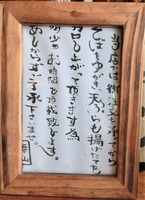 当店は御注文を承てから
そばをゆがき天ぷらも揚げたてを
召し上がって頂きます為
多少のお時間を頂戴致します。
あしからずご了承下さいませ。